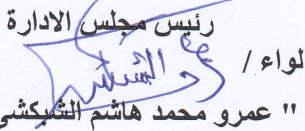 رئيس مجلس الادارة
لواء /
" عمرو محمد هاشم الشبكشي